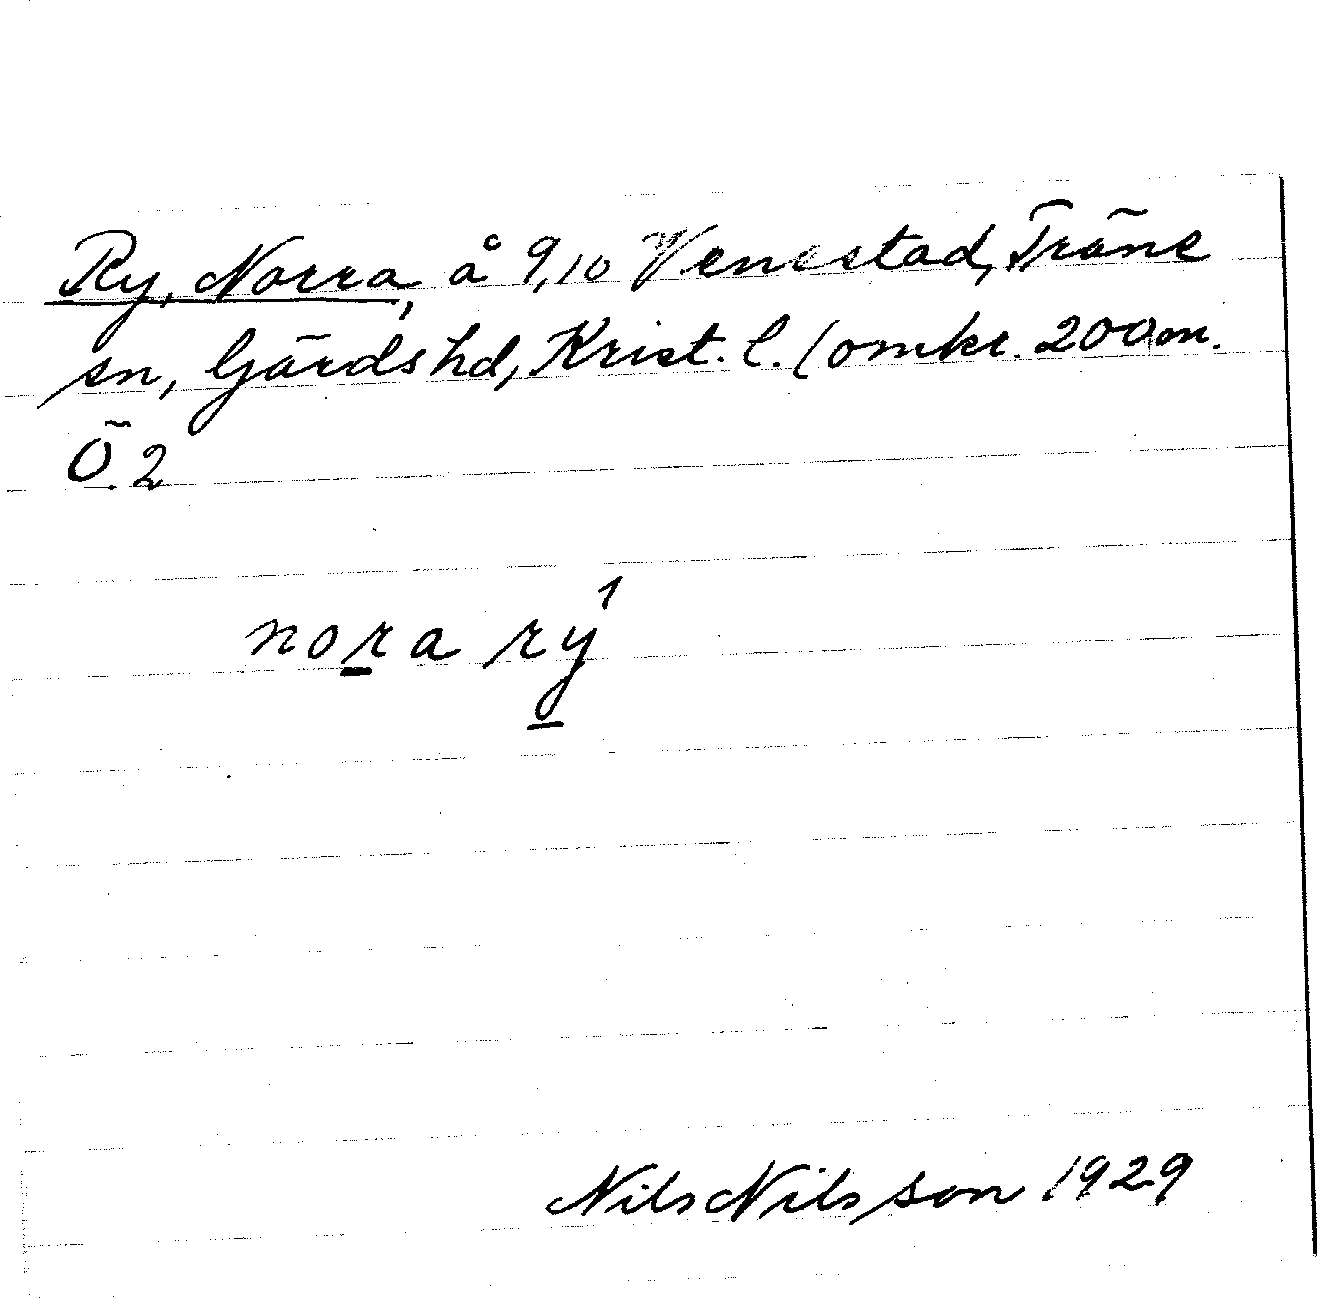 Ry, Norra, å 9,10 Venestad, Träne
sn, Gärds hd, Krist. l. (omkr. 200 m.
Ö. 2
nora ry´
Nils Nilsson 1929